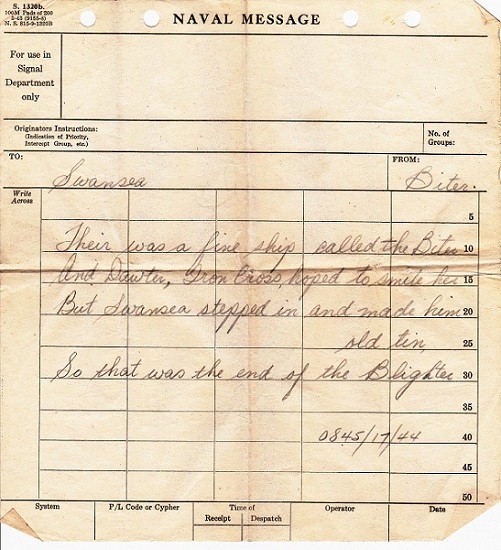 S. 1320b.
100M Pads of 200
2-43 (9155-8)
N. S. 815-9-1320B
NAVAL MESSAGE
For use in
Signal
Department
only
Originators Instructions:
(Indication of Priority,
Intercept Group, etc.)
No. of
Groups:
TO:
FROM:
Swansea
Biter.
Write
Across
5
Their was a fine ship called the Biter 10
And Dawter, Iron Cross, hoped to smite her 15
But Swansea stepped in and made him 20
old tin, 25
So that was the end of the Blighter 30
35
0845/17/44 40
45
50
System
P/L Code or Cypher
Time of
Receipt
Despatch
Operator
Date